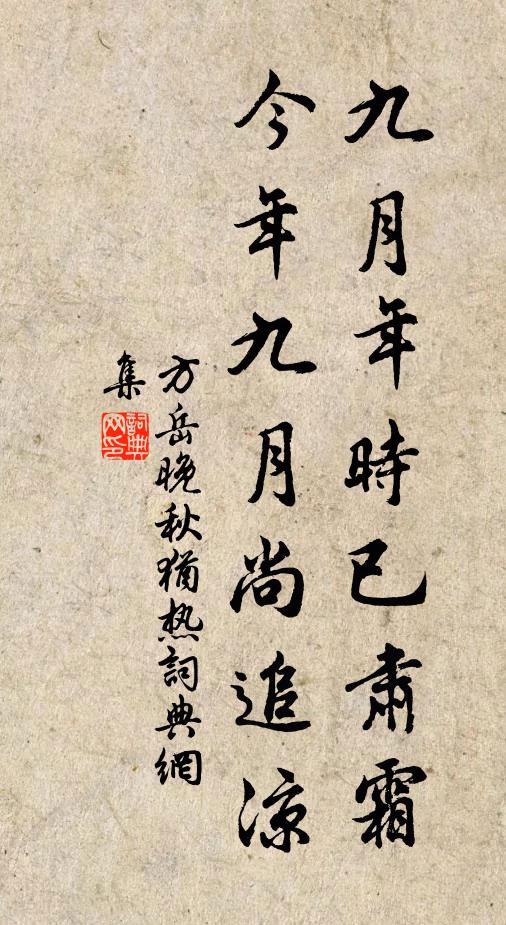 九月年時已肅霜
今年九月尚追涼
方岳晚秋猶热詞典網
集
詞典
网印